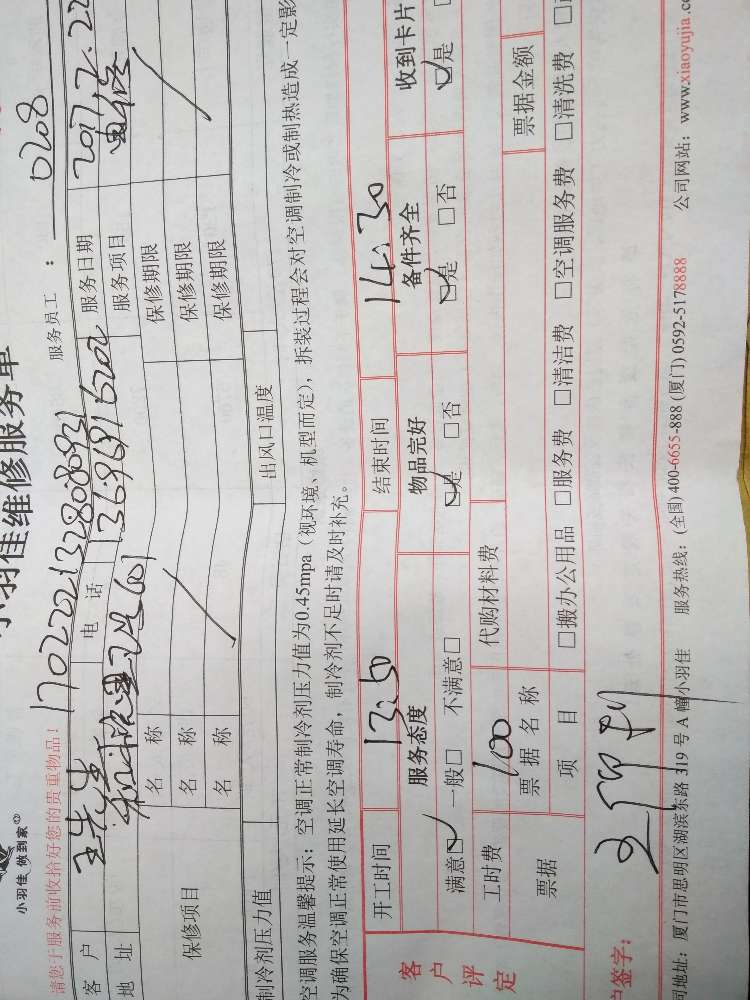 小羽佳维修服务单
小羽佳 做到家
请您于服务前收拾好您的贵重物品!
服务员工: 0208
客户 王先生 电话 13696916202 服务日期 2017.2.22
地址 服务项目
保修项目 名称 保修期限
名称 保修期限
名称 保修期限
制冷剂压力值 出风口温度
空调服务温馨提示:空调正常制冷剂压力值为0.45mpa(视环境、机型而定),拆装过程会对空调制冷或制热造成一定影
为确保空调正常使用延长空调寿命,制冷剂不足时请及时补充。
客户评定
开工时间 13:50 结束时间 14:30
服务态度 物品完好 备件齐全 收到卡片
满意□ 一般□ 不满意□ □是 □否 □是 □否 □是
工时费 100 代购材料费
票据 票据名称 票据金额
项目 □搬办公用品 □服务费 □清洁费 □空调服务费 □清洗费
户签字:
司地址:厦门市思明区湖滨东路 319 号 A 幢小羽佳 服务热线:(全国)400-6655-888 (厦门) 0592-5178888 公司网站:www.xiaoyujia.c